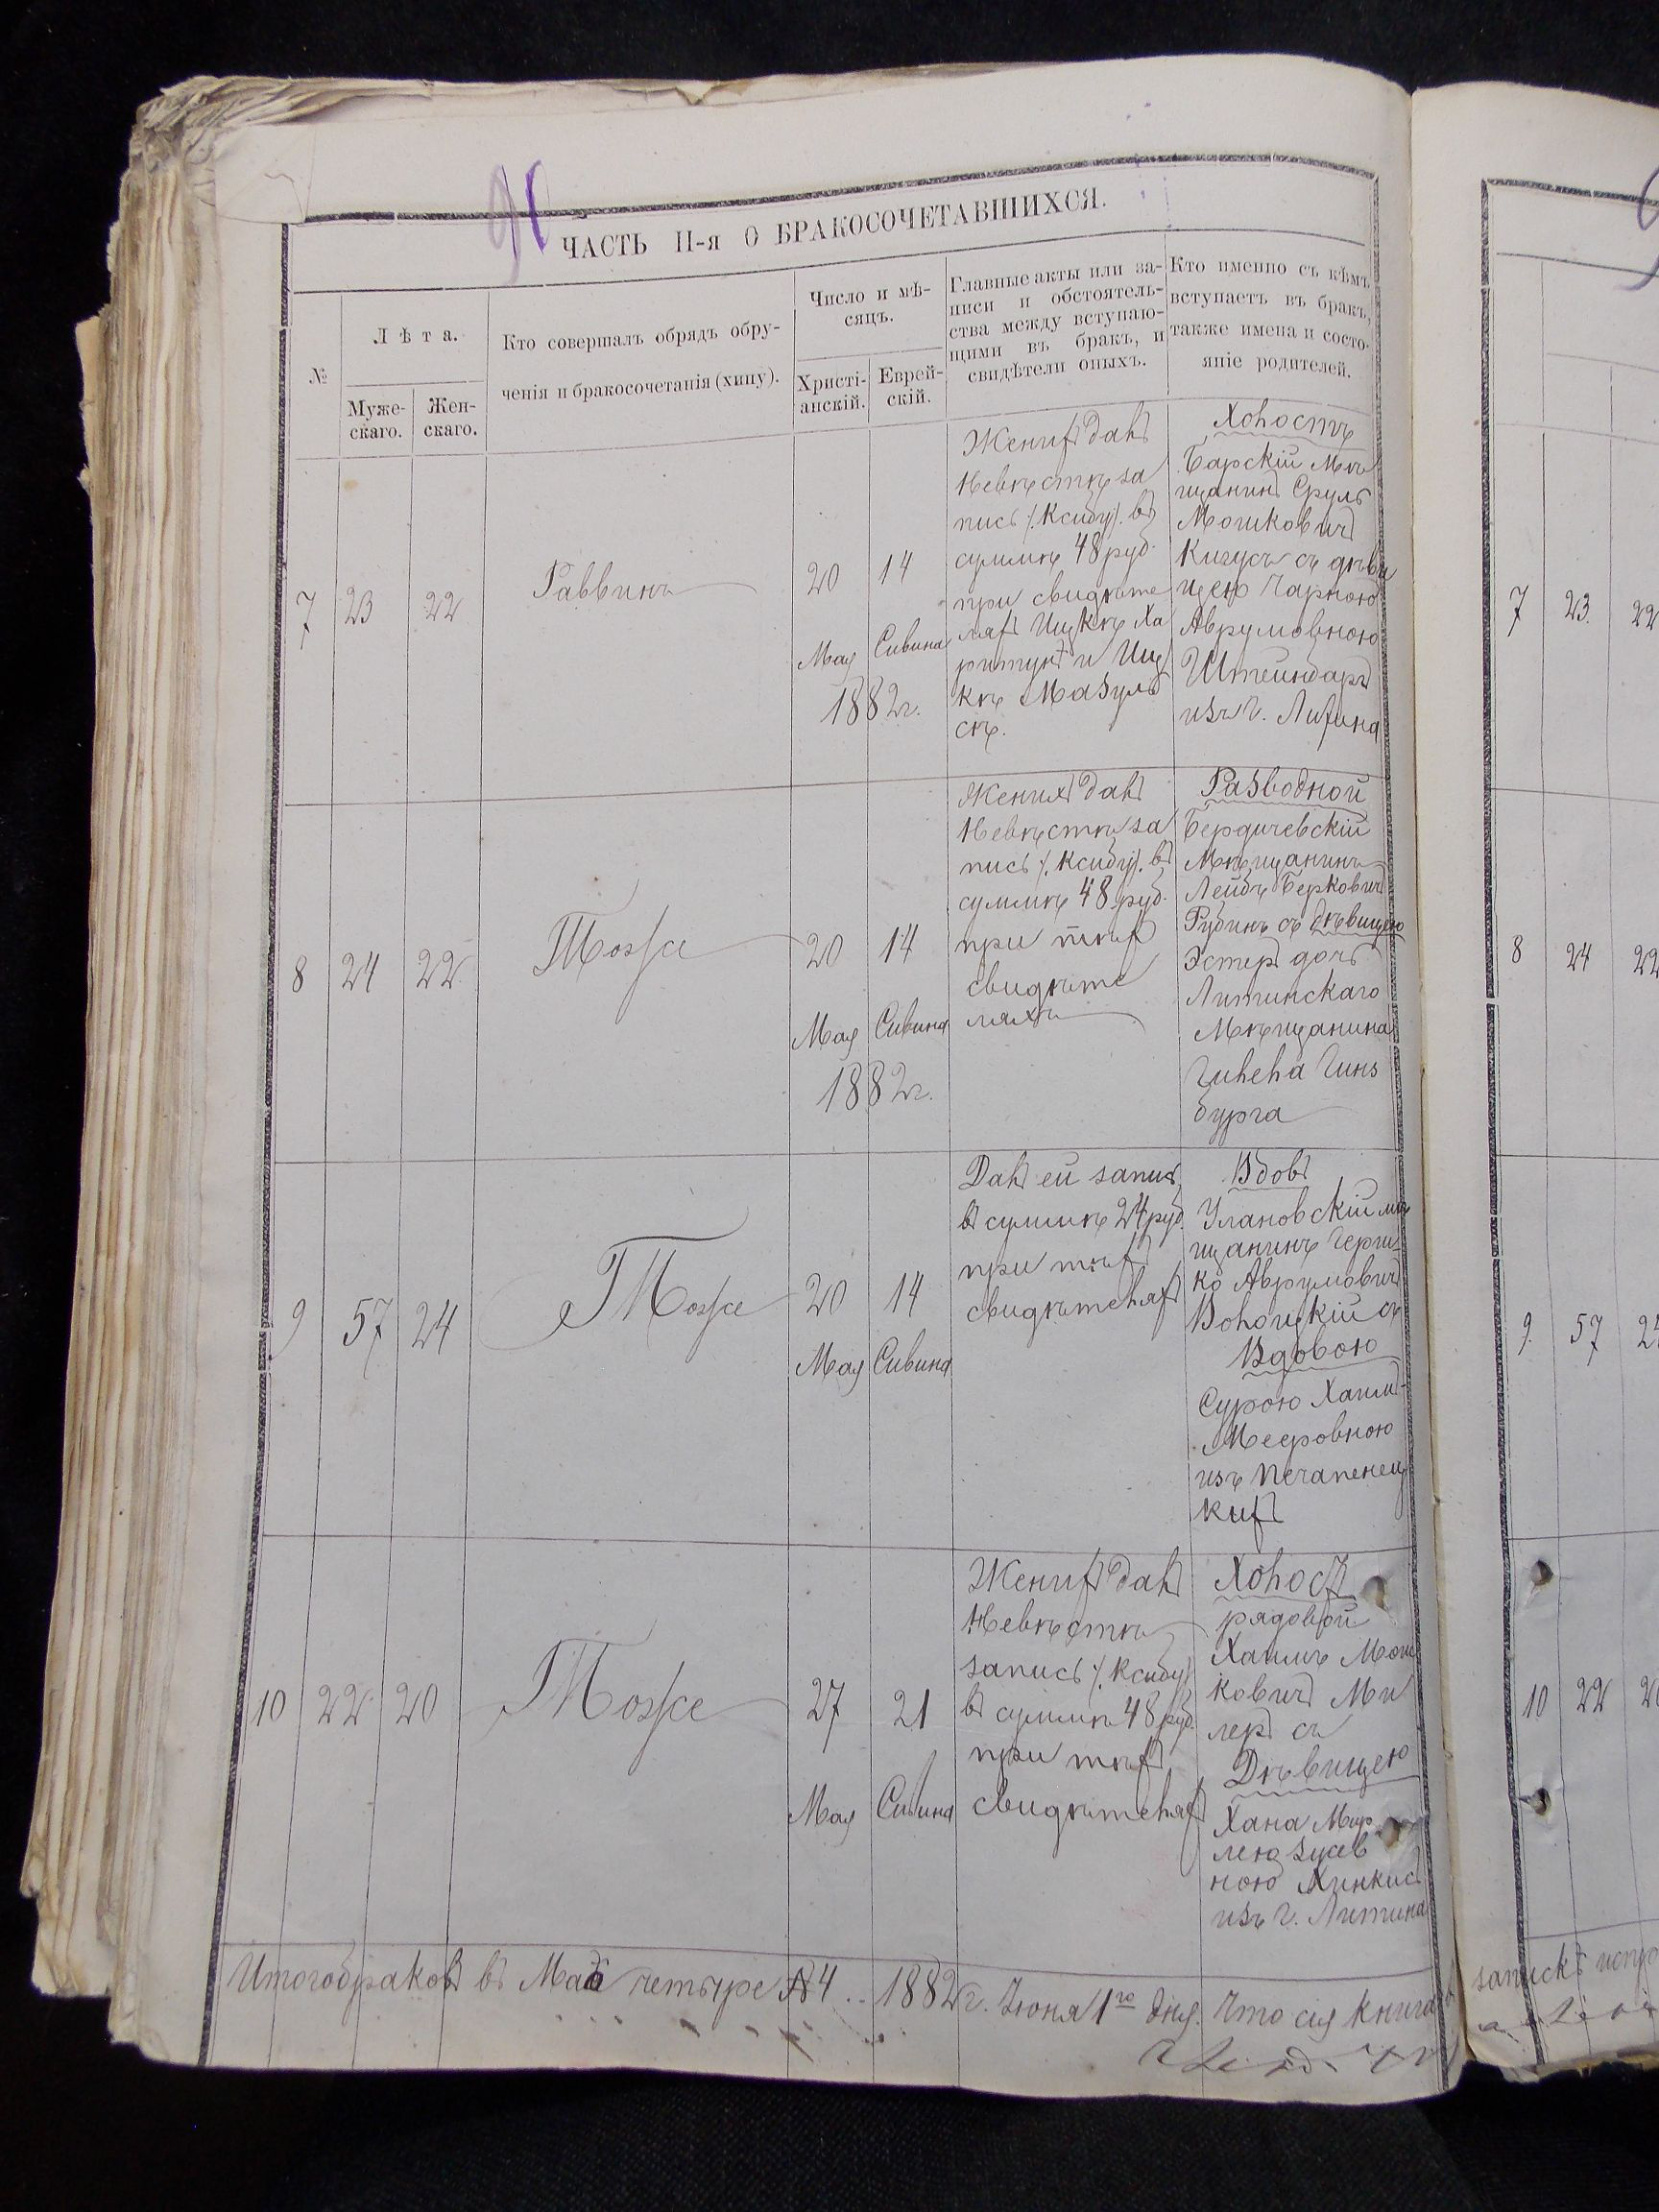 91
ЧАСТЬ II-я О БРАКОСОЧЕТАВШИХСЯ.
№
Лѣта.
Муже-
скаго.
Жен-
скаго.
Кто совершалъ обрядъ обру-
ченія и бракосочетанія (хипу).
Число и мѣ-
сяцъ.
Христі-
анскій.
Еврей-
скій.
Главные акты или за-
писи и обстоятель-
ства между вступаю-
щими въ бракъ, и
свидѣтели оныхъ.
Кто именно съ кѣмъ
вступаетъ въ бракъ,
также имена и состо-
яніе родителей.
7
23
22
Раввинъ
20
Мая
14
Сивина
1882г.
Женихъ далъ
невѣстѣ за
пись /.Ксибу/. въ
суммѣ 48 руб.
при свидѣте
ляхъ Ицкѣ Ха
ритунъ и Иц
кѣ Мазуль
скѣ.
Холостъ
Барскій Мѣ
щанинъ Сруль
Мошковичъ
Кигусъ съ дѣви
цею Чарною
Аврумовною
Штейнбаръ
изъ г. Литина
8
24
22
Тоже
20
Мая
14
Сивина
1882г.
Женихъ далъ
невѣстѣ за
пись /.Ксибу/. въ
суммѣ 48 руб.
при тѣхъ
свидѣте
ляхъ
Разводной
Бердичевскій
Мѣщанинъ
Лейбъ Берковичъ
Рубинъ съ дѣвицею
Эстеръ дочь
Литинскаго
Мѣщанина
Гилела Гинз
бурга
9
57
24
Тоже
20
Мая
14
Сивина
Далъ ей запись
въ суммѣ 24 руб.
при тѣхъ
свидѣтеляхъ
Вдовъ
Улановскій мѣ
щанинъ Герш-
ко Аврумовичъ
Волоцкій съ
Вдовою
Сурою Хаим-
Мееровною
изъ Печапенец
кихъ
10
22
20
Тоже
27
Мая
21
Сивина
Женихъ далъ
Невѣстѣ
запись /.Ксибу/
въ суммѣ 48 руб.
при тѣхъ
свидѣтеляхъ
Холостъ
рядовой
Хаимъ Мош
ковичъ Ми
леръ съ
Дѣвицею
Хана
лею Зусев
ною Хинкисъ
изъ г. Литина
Итого браковъ въ Маѣ четыре №4 .. 1882 г. Іюня 1го дня. Что сія книга
7
23
22
8
24
22
9
57
24
10
22
20